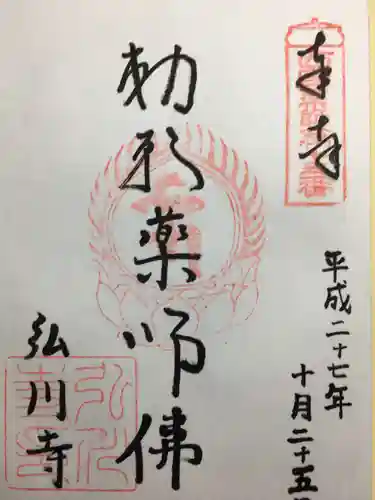 奉拝
平成二十七年
十月二十五
勅願薬師佛
弘川寺